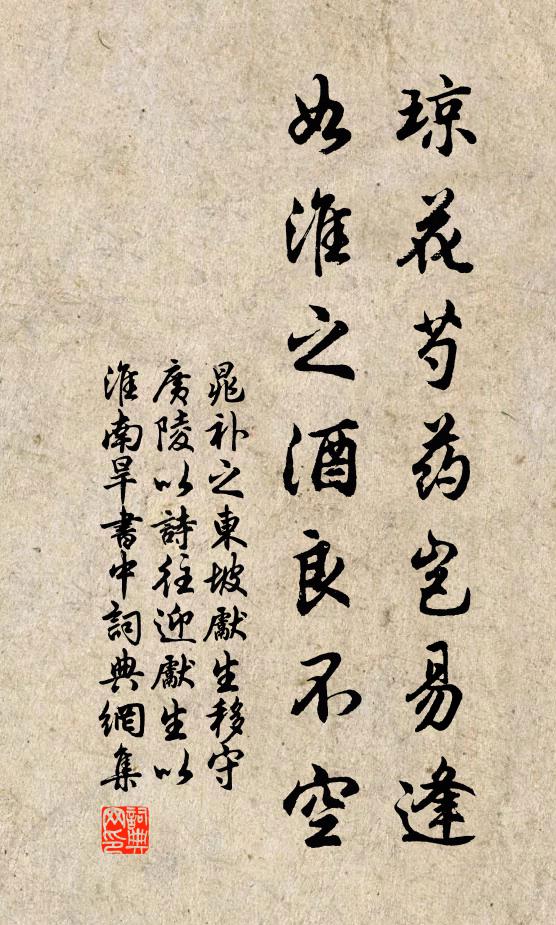 琼花芍药岂易逢
如淮之酒良不空
晁补之東坡獻生移守
廣陵以詩往迎獻生以
淮南旱書中詞典網集
詞典网印